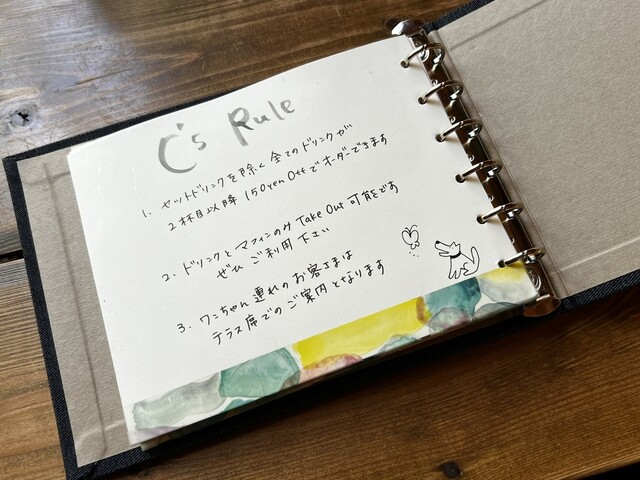 C's Rule
1. セットドリンクを除く全てのドリンクが
2杯目以降 150yen Offでオーダーできます
2. ドリンクとマフィンのみ Take Out 可能です
ぜひ ご利用下さい
3. ワンちゃん連れのお客さまは
テラス席でのご案内となります